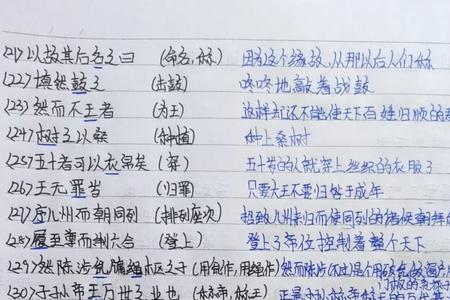 (21) 以故其后名之曰 (命名,称) 因为这个缘故,从那以后人们称
(22) 填然鼓之 (击鼓) 咚咚地敲着战鼓
(23) 然而不王者 (为王) 这样却还不能使天下百姓归顺的君
(24) 树之以桑 (种植) 种上桑树
(25) 五十者可以衣帛矣 (穿) 五十岁的人就穿上丝织的衣服了
(26) 王无罪岁 (归罪) 只要大王不要归咎于成年
(27) 序八州而朝同列 (排列座次) 招致八州归而使同列的诸侯朝拜
(28) 履至尊而制六合 (登上) 登上了帝位控制着整个天下
(29) 然陈涉瓮牖绳枢之子 (用瓮作,用绳作) 然而陈涉
(30) 子孙帝王万世之业也 (称帝,称王)